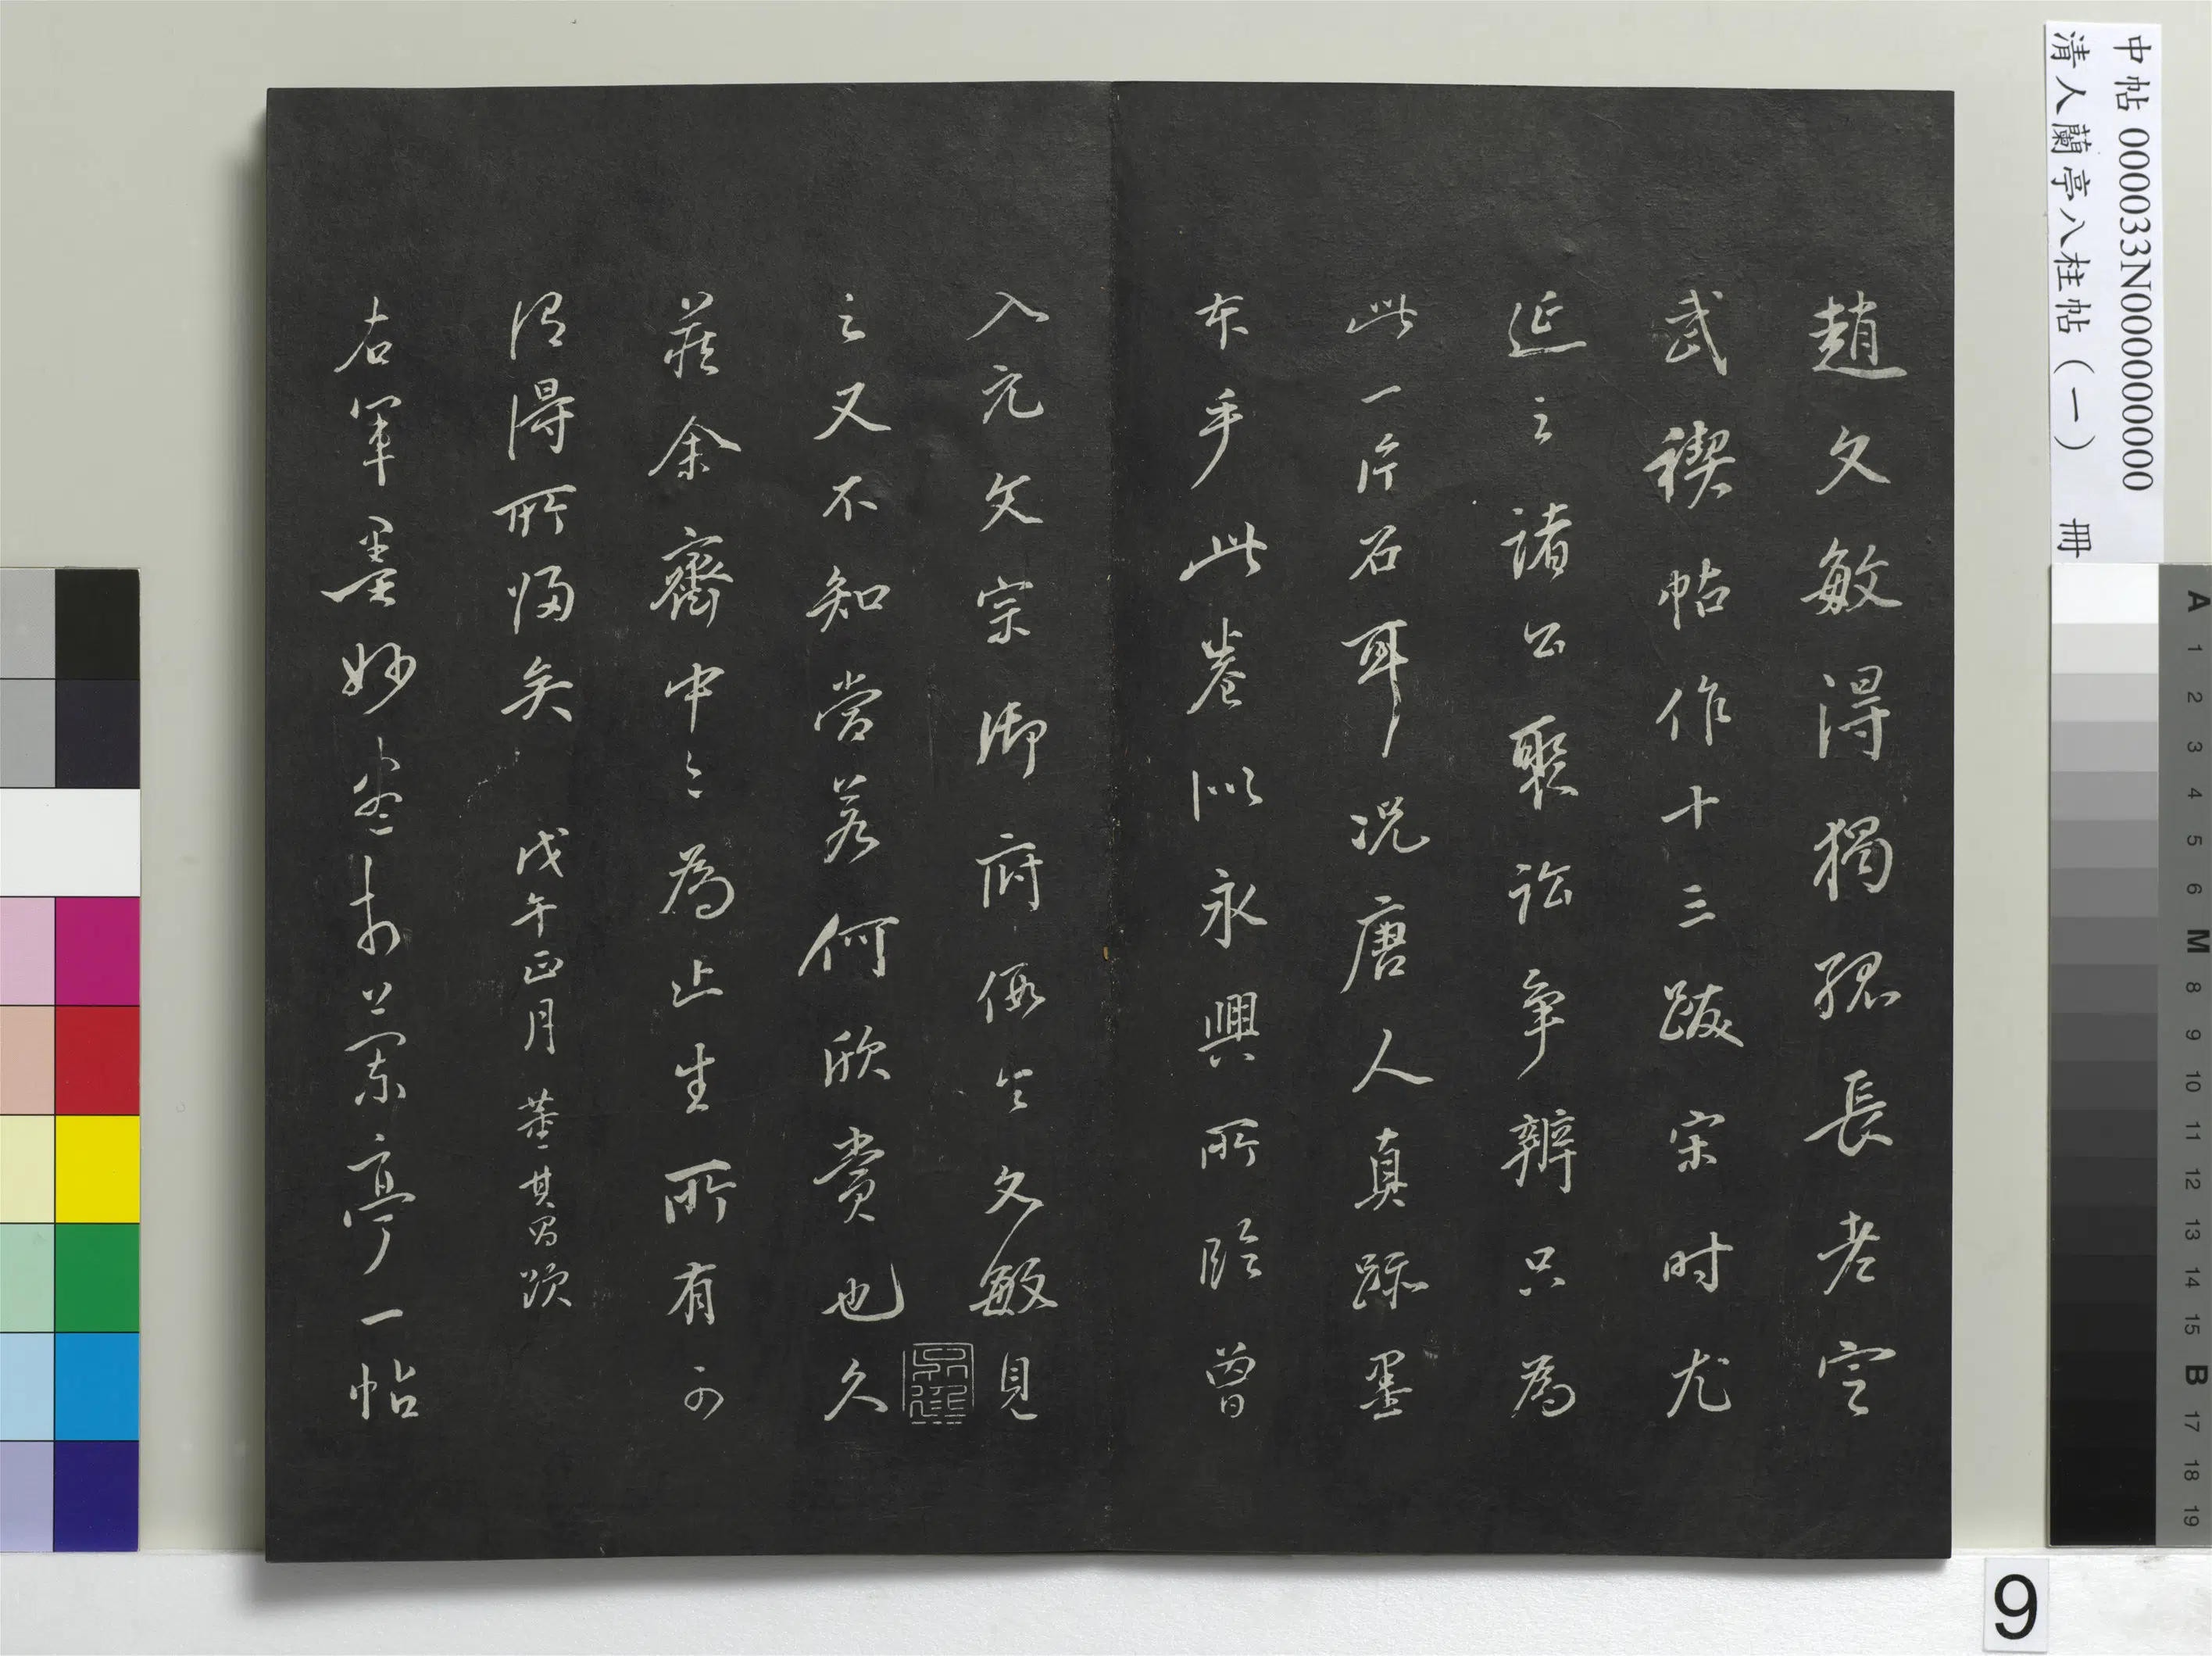 中帖 000033N000000000
清人蘭亭八柱帖（一） 冊
趙文敏得獨孤長老定
武禊帖作十三跋宋时尤
延之諸公聚訟争辨只為
此一片石耳況唐人真跡墨
本手此卷似永興所臨曾
入元文宗御府假令文敏見
之又不知當若何欣賞也久
藏余齋中今為止生所有可
謂得所歸矣 戊午正月 董其昌跋
右軍墨妙盡於蘭亭一帖
A 1 2 3 4 5 6 M 8 9 10 11 12 13 14 15 B 17 18 19
9